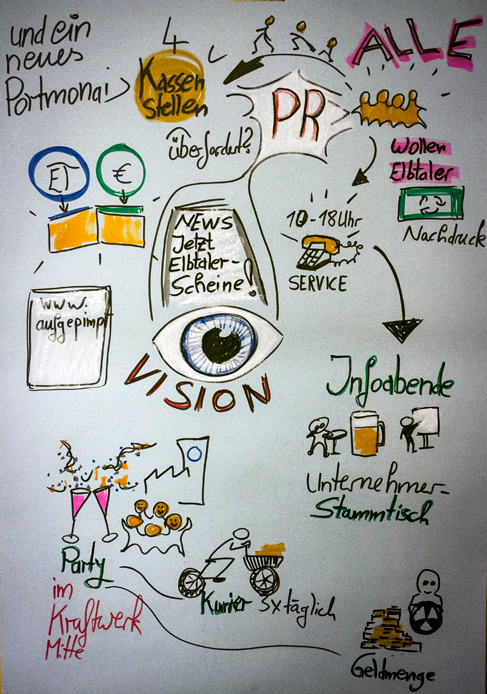 und ein
neues
Portmonai
4
Kassen
stellen
überfordert?
PR
ALLE
wollen
Elbtaler
Nachdruck
ET
€
NEWS
Jetzt
Elbtaler-
Scheine!
10-18 Uhr
SERVICE
www.
aufgepimpt
VISION
Infoabende
Unternehmer-
Stammtisch
Party
im
Kraftwerk
Mitte
Kurier 3x täglich
Geldmenge